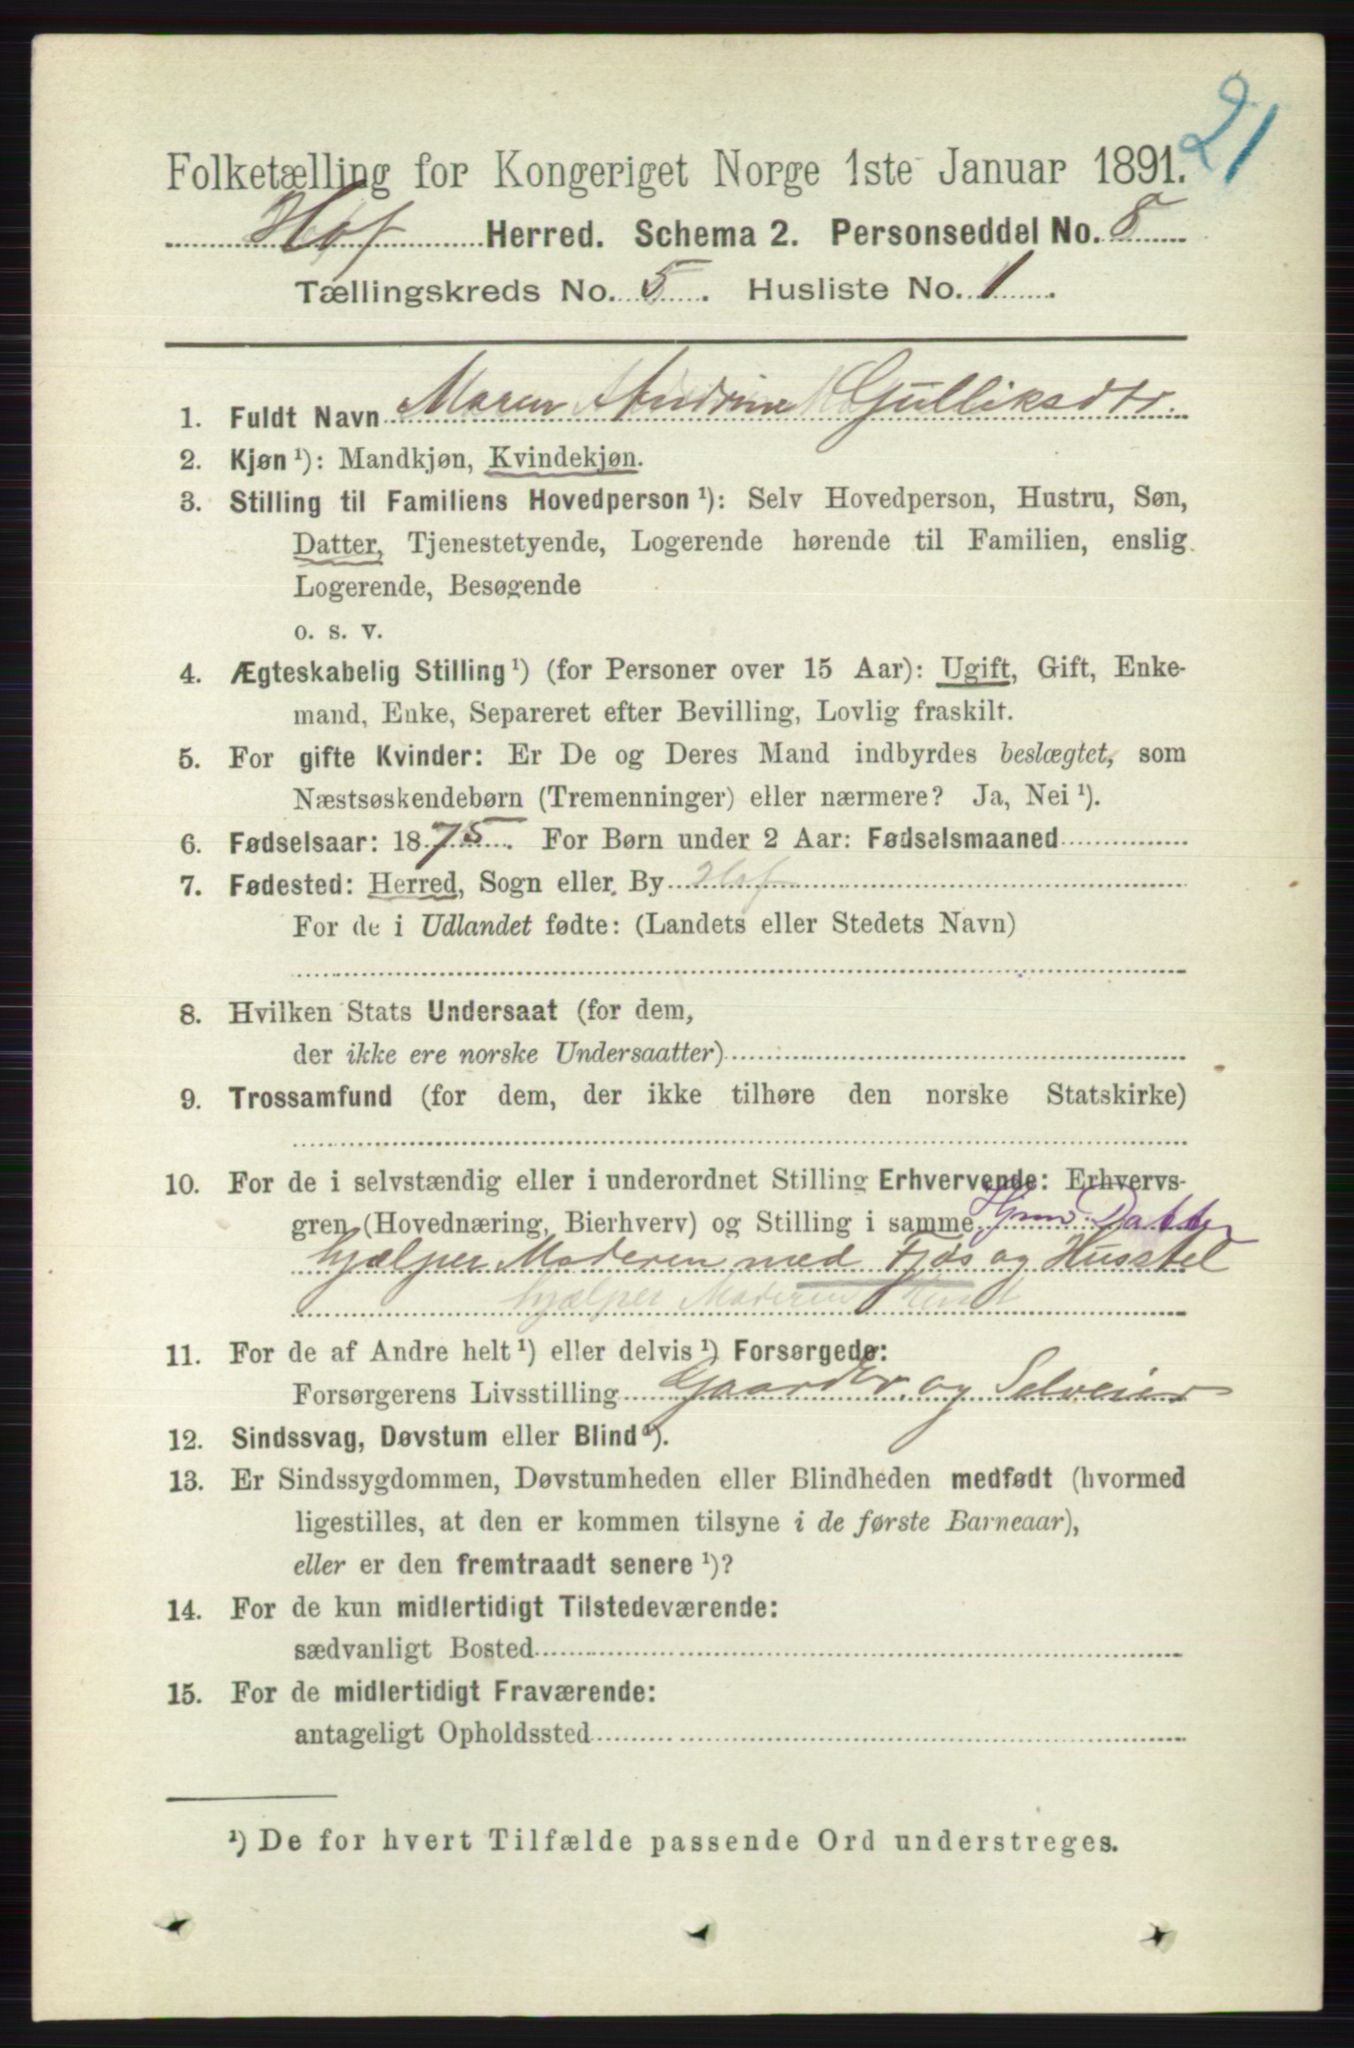 21
Folketælling for Kongeriget Norge 1ste Januar 1891.
Hof Herred. Schema 2. Personseddel No. 8
Tællingskreds No. 5. Husliste No. 1.
1. Fuldt Navn Maren Andrine Gulliksdtr.
2. Kjøn ¹): Mandkjøn, Kvindekjøn.
3. Stilling til Familiens Hovedperson ¹): Selv Hovedperson, Hustru, Søn,
Datter, Tjenestetyende, Logerende hørende til Familien, enslig
Logerende, Besøgende
o. s. v.
4. Ægteskabelig Stilling ¹) (for Personer over 15 Aar): Ugift, Gift, Enke-
mand, Enke, Separeret efter Bevilling, Lovlig fraskilt.
5. For gifte Kvinder: Er De og Deres Mand indbyrdes beslægtet, som
Næstsøskendebørn (Tremenninger) eller nærmere? Ja, Nei ¹).
6. Fødselsaar: 1875. For Børn under 2 Aar: Fødselsmaaned
7. Fødested: Herred, Sogn eller By Hof
For de i Udlandet fødte: (Landets eller Stedets Navn)
8. Hvilken Stats Undersaat (for dem,
der ikke ere norske Undersaatter)
9. Trossamfund (for dem, der ikke tilhøre den norske Statskirke)
10. For de i selvstændig eller i underordnet Stilling Erhvervende: Erhvervs-
gren (Hovednæring, Bierhverv) og Stilling i samme Hjmv. Datter
hjælper Moderen med Fjøs og Husstel
hjælper Moderen
11. For de af Andre helt ¹) eller delvis ¹) Forsørgede:
Forsørgerens Livsstilling Gaardbr. og Selveier
12. Sindssvag, Døvstum eller Blind ¹).
13. Er Sindssygdommen, Døvstumheden eller Blindheden medfødt (hvormed
ligestilles, at den er kommen tilsyne i de første Barneaar),
eller er den fremtraadt senere ¹)?
14. For de kun midlertidigt Tilstedeværende:
sædvanligt Bosted
15. For de midlertidigt Fraværende:
antageligt Opholdssted
¹) De for hvert Tilfælde passende Ord understreges.